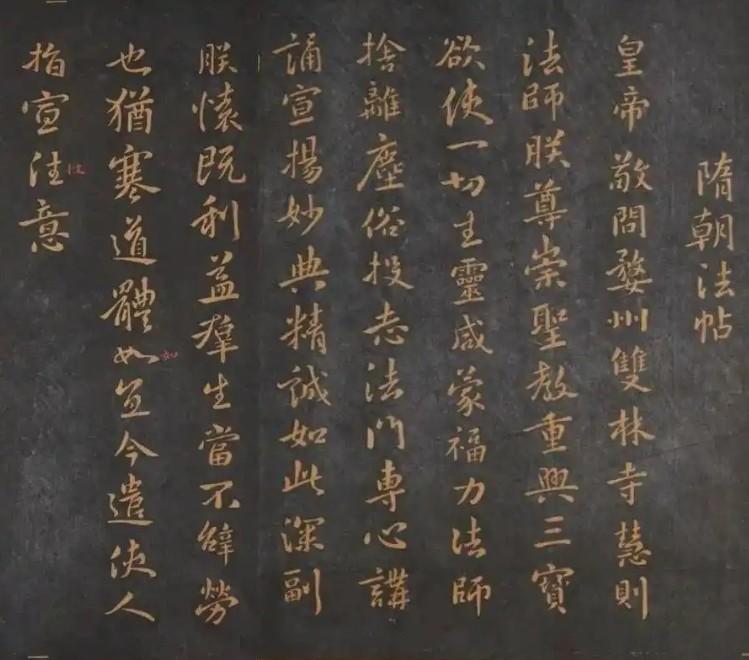 隋朝法帖
皇帝敬問婺州雙林寺慧則
法師朕尊崇聖教重興三寶
欲使一切生靈咸蒙福力法師
捨離塵俗投志法門專心講
誦宣揚妙典精誠如此深副
朕懷既利益群生當不辭勞
也猶寒道體如宜今遣使人
如
指宣往意
往